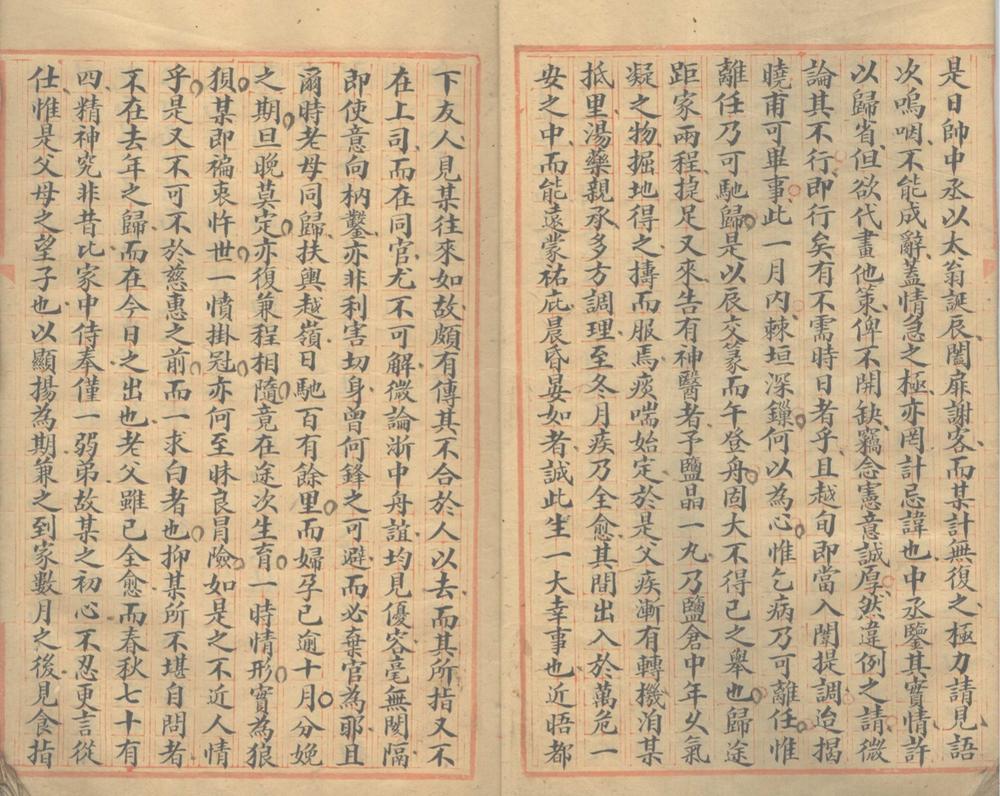 是日帥中丞以太翁誕辰闔扉謝客而某計無復之極力請見語
次嗚咽不能成辭蓋情急之極亦罔計忌諱也中丞鑒其實情許
以歸省但欲代畫他策俾不開缺竊念憲意誠厚然違例之請微
論其不行即行矣有不需時日者乎且越旬即當入闈提調迨揭
曉甫可畢事此一月內棘垣深鏁何以為心惟乞病乃可離任惟
離任乃可馳歸是以辰交篆而午登舟固大不得已之舉也歸途
距家兩程揵足又來告有神醫者予鹽晶一丸乃鹽倉中年久氣
凝之物掘地得之擣而服焉痰喘始定於是父疾漸有轉機洎某
抵里湯藥親承多方調理至冬月疾乃全愈其間出入於萬危一
安之中而能遠蒙祐庇晨昏晏如者誠此生一大幸事也近晤都
下友人見某往來如故頗有傳其不合於人以去而其所指又不
在上司而在同官尤不可解微論浙中舟誼均見優容毫無閡隔
即使意向枘鑿亦非利害切身曾何鋒之可避而必棄官為耶且
爾時老母同歸扶輿越嶺日馳百有餘里而婦孕已逾十月分娩
之期旦晚莫定亦復兼程相隨竟在途次生育一時情形實為狼
狽某即褊衷忤世一憤掛冠亦何至昧良冒險如是之不近人情
乎是又不可不於慈惠之前而一求白者也抑某所不堪自問者
不在去年之歸而在今日之出也老父雖已全愈而春秋七十有
四精神究非昔比家中侍奉僅一弱弟故某之初心不忍更言從
仕惟是父母之望子也以顯揚為期兼之到家數月之後見食指